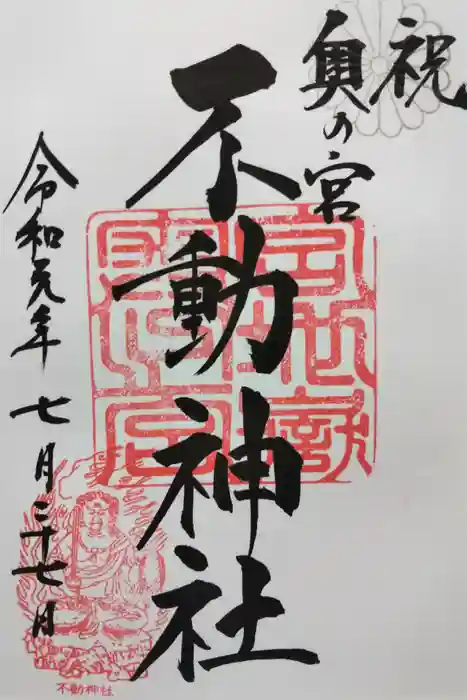 祝
奥の宮
不動神社
令和元年七月二十七日
不動神社